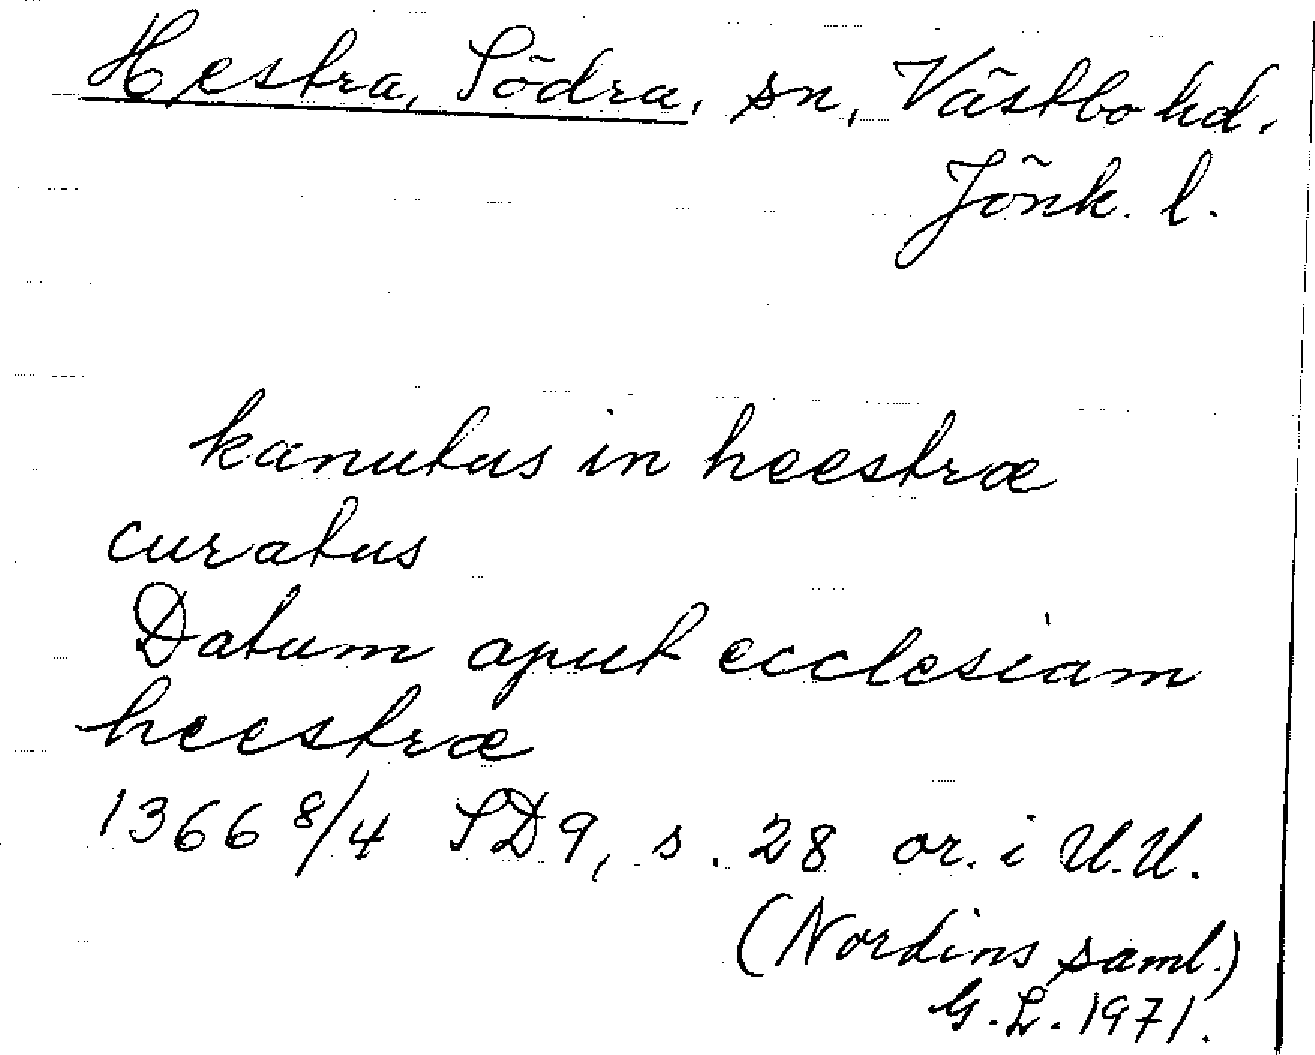 Hestra, Södra, sn, Västbo hd.
Jönk. l.
kanutus in heestræ
curatus
Datum aput ecclesiam
heestræ
1366 8/4 SD 9, s. 28 or. i U.U.
(Nordins saml.)
G.L. 1971.